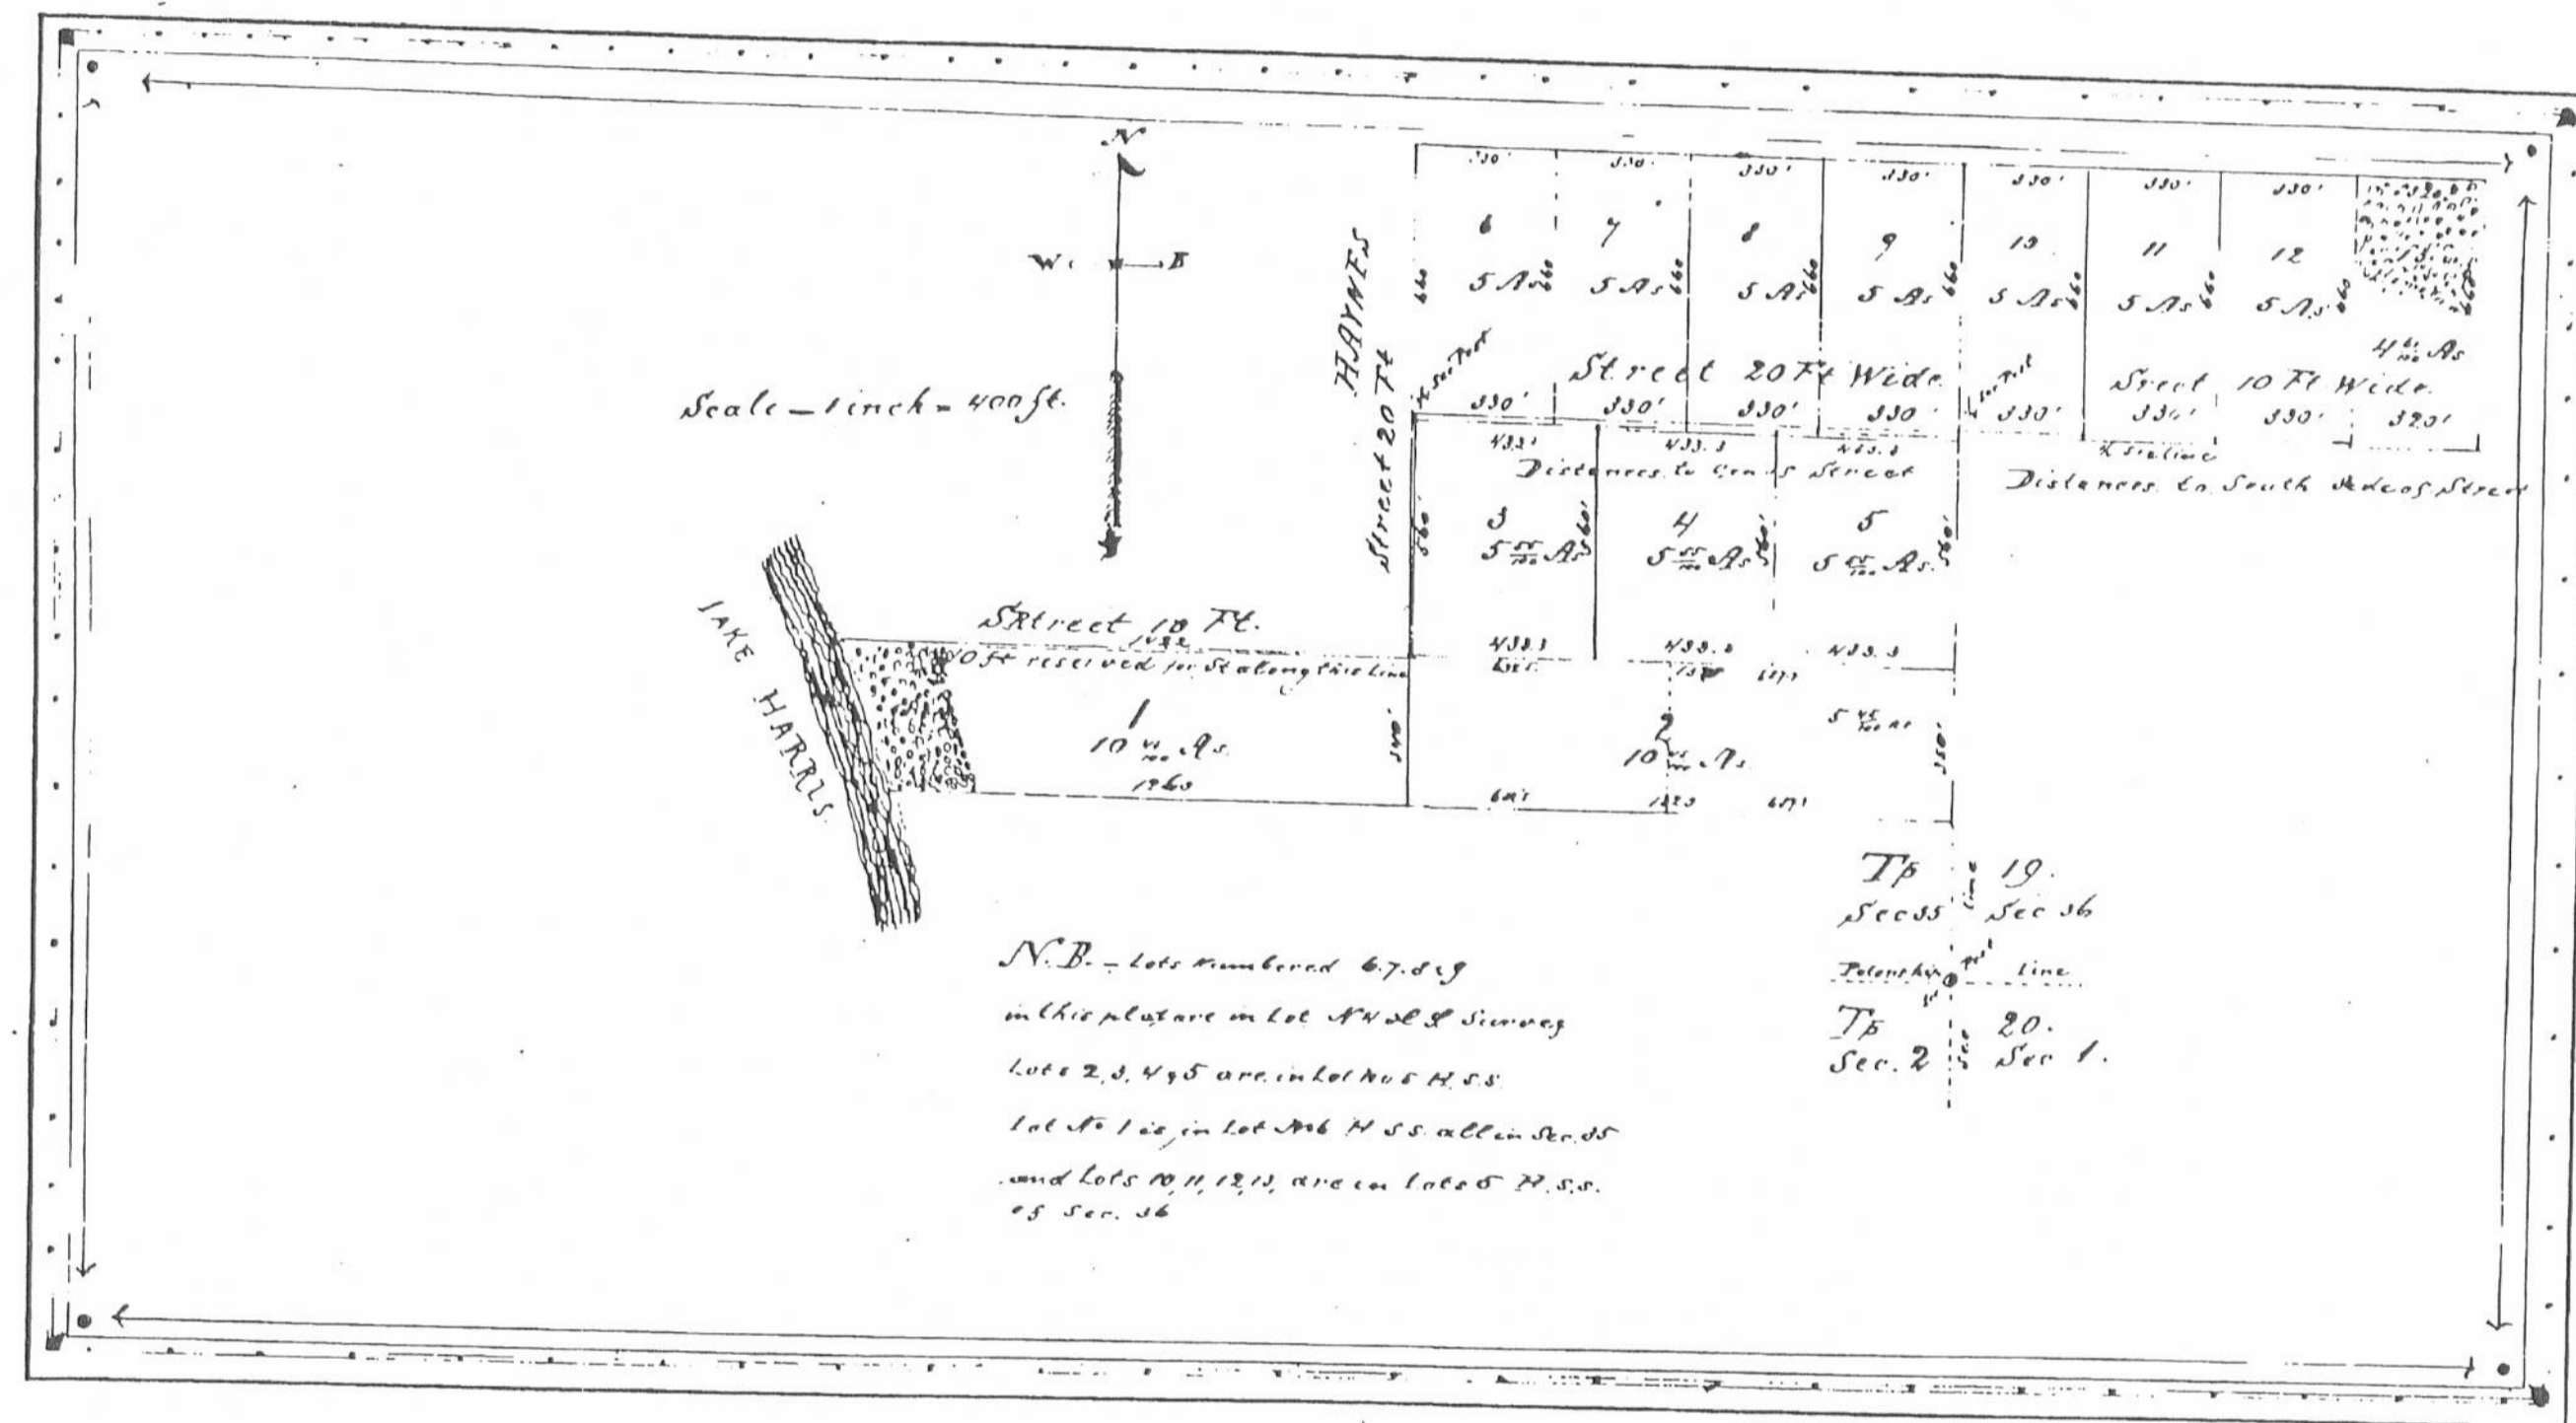 N
W. E
Scale - 1 inch = 400 ft.
HAYNES
Street 20 Ft
330' 330' 330' 330' 330' 330' 330' 320
6 7 8 9 10 11 12 13
660 5 As 660 5 As 660 5 As 660 5 As 660 5 As 660 5 As 660 5 As 660 660
4 61/100 As
Street 20 Ft Wide
Sreet 10 Ft Wide.
330' 330' 330' 330' 330' 330' 330' 320'
433.3 433.3 433.3
Distances to Street
Distances to South side of Street
3 4 5
560' 5 55/100 As 560' 5 55/100 As 560' 5 55/100 As. 560'
433.3 433.3 433.3
LAKE HARRIS.
SRtreet 10 Ft.
10 ft reserved for St along this Line
1 2
10 As. 340' 10 As. 350'
5 45/100 As
1260
Tp line 19.
Sec 35 Sec 36
Township line
Tp 20.
Sec. 2 Sec 1.
N.B. - Lots numbered 6.7.8 & 9
in this plat are in Lot N 4 Survey
Lots 2, 3, 4 & 5 are in Lot No 5 H.S.S.
Lot No 1 is in Lot No 6 H S S. all in Sec. 35
and Lots 10, 11, 12, 13, are in Lots 5 H.S.S.
of Sec. 36